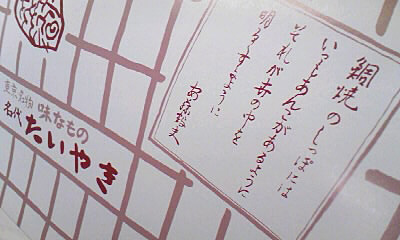 鯛焼のしっぽには
いつもあんこがあるように
それが世の中を
明るくするように
安藤鶴夫
東京名物 味なもの
名代 たいやき